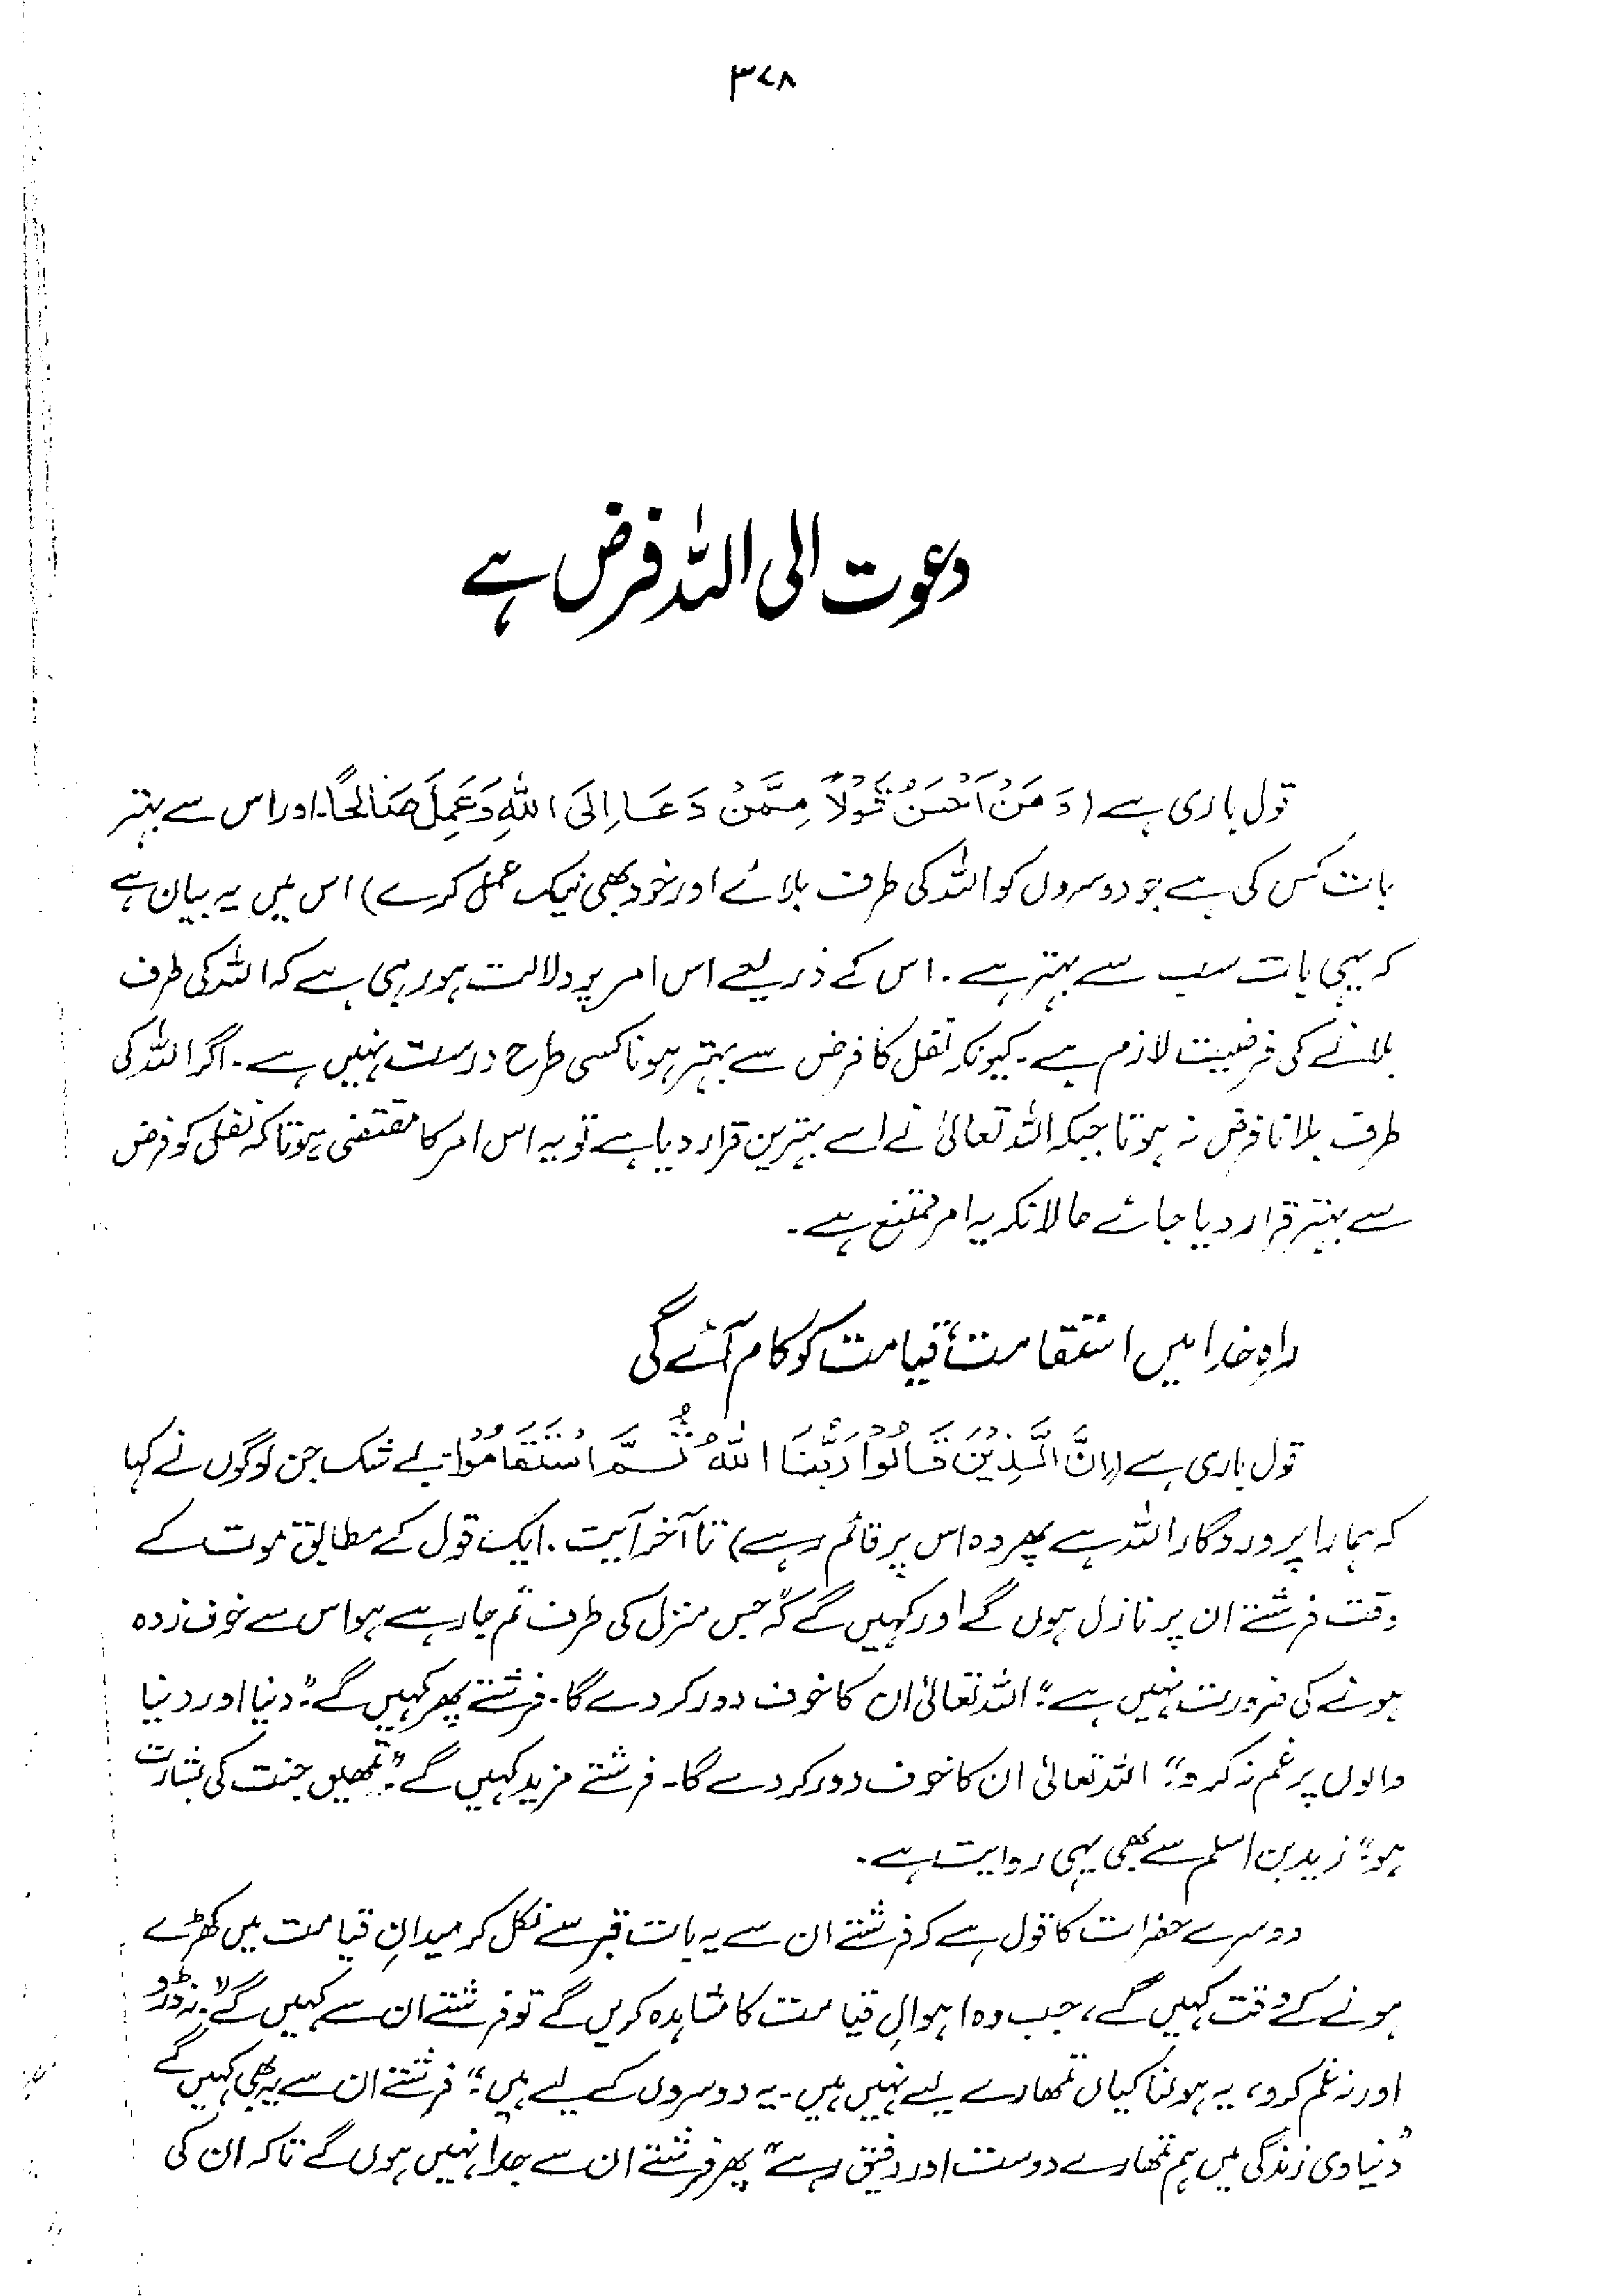 ۳۷۸
دعوت الی اللہ فرض ہے
قول باری ہے (وَمَنْ اَحْسَنُ قَوْلاً مِمَّنْ دَعَا اِلَی اللهِ وَعَمِلَ صَالِحًا۔ اور اس سے بہتر
بات کس کی ہے جو دوسروں کو اللہ کی طرف بلائے اور خود بھی نیک عمل کرے) اس میں یہ بیان ہے
کہ یہی بات سب سے بہتر ہے۔ اس کے ذریعے اس امر پر دلالت ہو رہی ہے کہ اللہ کی طرف
بلانے کی فرضیت لازم ہے۔ کیونکہ نفل کا فرض سے بہتر ہونا کسی طرح درست نہیں ہے۔ اگر اللہ کی
طرف بلانا فرض نہ ہوتا جبکہ اللہ تعالیٰ نے اسے بہترین قرار دیا ہے تو یہ اس امر کا مقتضی ہوتا کہ نفل کو فرض
سے بہتر قرار دیا جائے حالانکہ یہ امر ممتنع ہے۔
راہِ خدا میں استقامت قیامت کو کام آئے گی
قول باری ہے (اِنَّ الَّذِیْنَ قَالُوْا رَبُّنَا اللهُ ثُمَّ اسْتَقَامُوْا بے شک جن لوگوں نے کہا
کہ ہمارا پروردگار اللہ ہے پھر وہ اس پر قائم رہے) تا آخر آیت۔ ایک قول کے مطابق موت کے
وقت فرشتے ان پر نازل ہوں گے اور کہیں گے کہ "جس منزل کی طرف تم جا رہے ہو اس سے خوف زدہ
ہونے کی ضرورت نہیں ہے" اللہ تعالیٰ ان کا خوف دور کر دے گا۔ فرشتے پھر کہیں گے: "دنیا اور دنیا
والوں پر غم نہ کرو" اللہ تعالیٰ ان کا خوف دور کر دے گا۔ فرشتے مزید کہیں گے: "تمھیں جنت کی بشارت
ہو" زید بن اسلم سے بھی یہی روایت ہے۔
دوسرے حضرات کا قول ہے کہ فرشتے ان سے یہ بات قبر سے نکل کر میدانِ قیامت میں کھڑے
ہونے کے وقت کہیں گے، جب وہ اہوالِ قیامت کا مشاہدہ کریں گے تو فرشتے ان سے کہیں گے: "نہ ڈرو
اور نہ غم کرو، یہ ہولناکیاں تمھارے لیے نہیں ہیں۔ یہ دوسروں کے لیے ہیں" فرشتے ان سے یہ بھی کہیں گے
"دنیاوی زندگی میں ہم تمھارے دوست اور رفیق رہے" پھر فرشتے ان سے جدا نہیں ہوں گے تاکہ ان کی